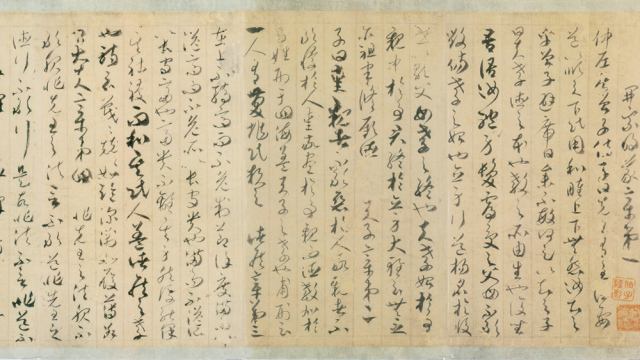 開宗明義章第一
仲尼居曾子侍子曰先王有至德要
道以順天下民用和睦上下無怨汝知之
乎曾子避席曰參不敏何足以知之子
曰夫孝德之本也教之所由生也復坐
吾語汝身體髮膚受之父母不敢
毀傷孝之始也立身行道揚名於後
世以顯父母孝之終也夫孝始於事
親中於事君終於立身大雅云無念
爾祖聿脩厥德 天子章第二
子曰愛親者不敢惡於人敬親者不
敢慢於人愛敬盡於事親而德教加於
百姓刑于四海蓋天子之孝也甫刑云
一人有慶兆民賴之 諸侯章第三
在上不驕高而不危制節謹度滿而不
溢高而不危所以長守貴也滿而不溢所
以長守富也富貴不離其身然後能保
其社稷而和其民人蓋諸侯之孝
也詩云戰戰兢兢如臨深淵如履薄冰
卿大夫章第四 非先王之法服不
敢服非先王之法言不敢道非先王之
德行不敢行是故非法不言非道不